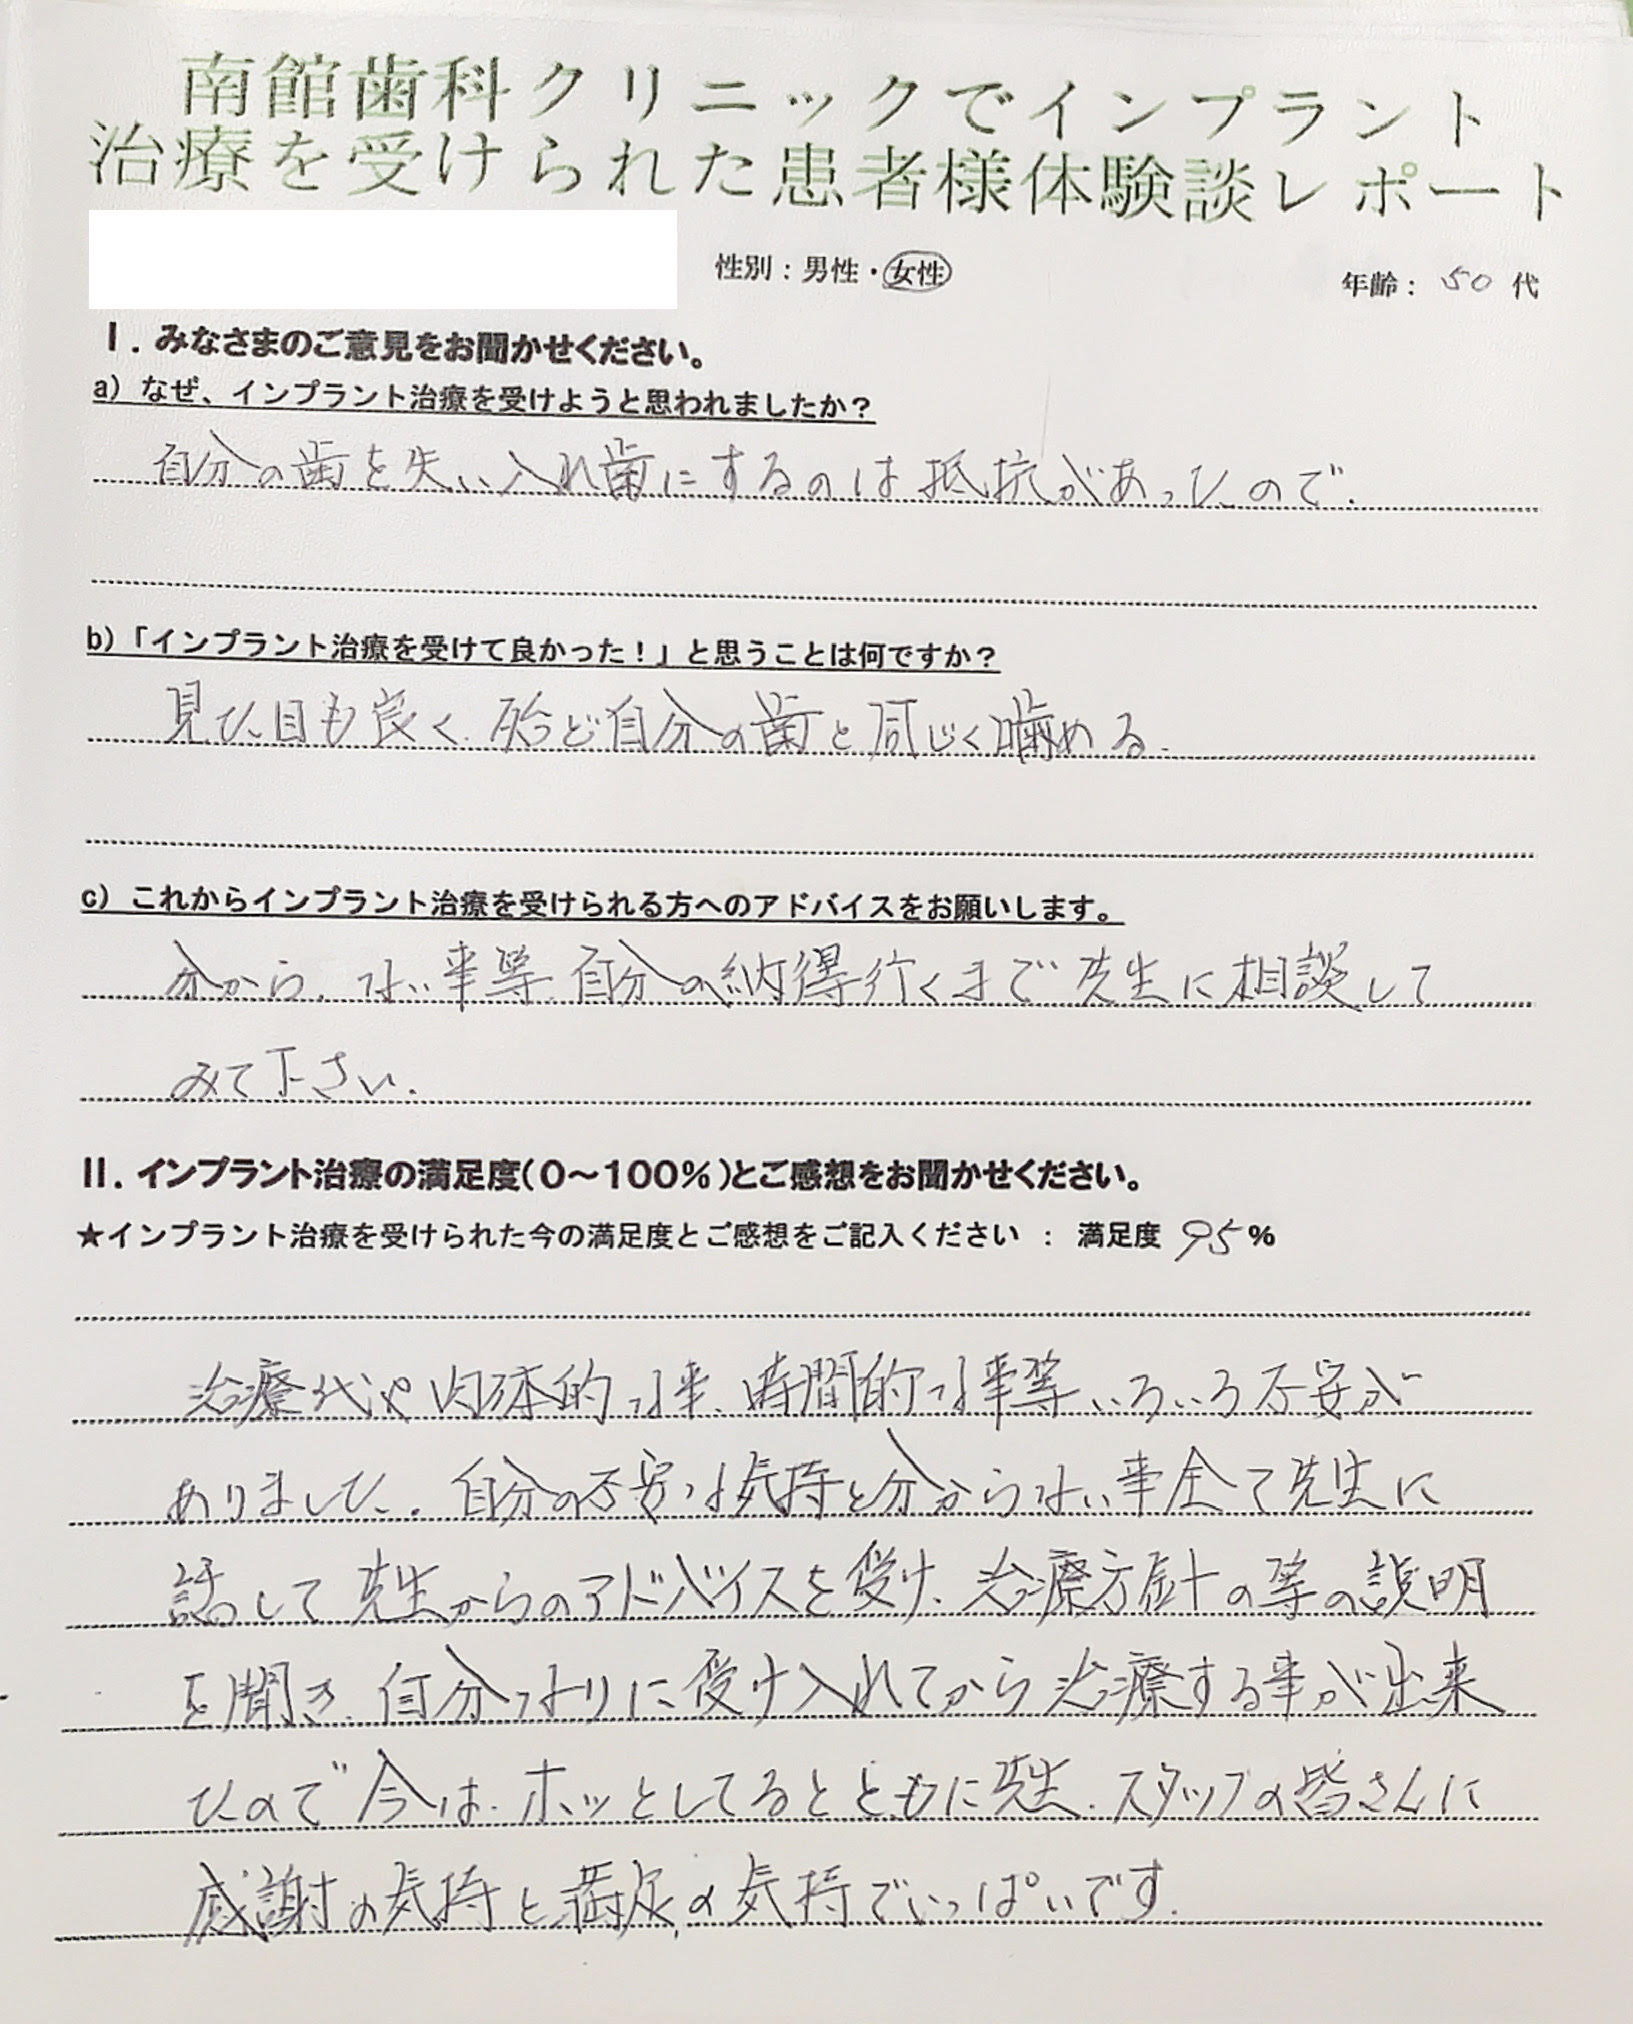 南館歯科クリニックでインプラント
治療を受けられた患者様体験談レポート
性別：男性・女性 年齢：50代
Ⅰ．みなさまのご意見をお聞かせください。
a）なぜ、インプラント治療を受けようと思われましたか？
自分の歯を失い入れ歯にするのは抵抗があったので.
b）「インプラント治療を受けて良かった！」と思うことは何ですか？
見た目も良く.殆ど自分の歯と同じく噛める.
c）これからインプラント治療を受けられる方へのアドバイスをお願いします。
分から、ない事等.自分の納得行くまで先生に相談して
みて下さい.
Ⅱ．インプラント治療の満足度（0～100％）とご感想をお聞かせください。
★インプラント治療を受けられた今の満足度とご感想をご記入ください ： 満足度 95％
治療代や肉体的な事、時間的な事等いろいろ不安が
ありました.自分の不安な気持と分からない事全て先生に
話して先生からのアドバイスを受け、治療方針の等の説明
を聞き、自分なりに受け入れてから治療する事が出来
たので今は.ホッとしてるとともに先生.スタッフの皆さんに
感謝の気持と満足の気持でいっぱいです.